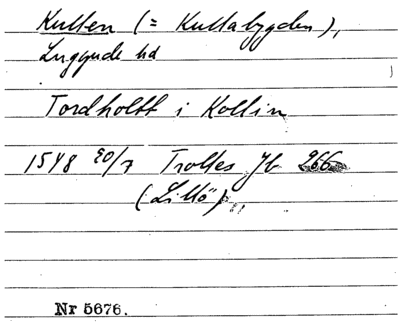 Kullen (= Kullabygden),
Luggude hd
Tordholtt i Kollin
1548 20/7 Trolles Jb 266
(Lillö)
Nr 5676.